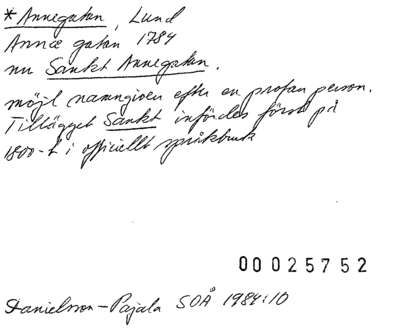 *Annegatan, Lund
Annæ gatan 1784
nu Sankt Annegatan.
möjl namngiven efter en profan person.
Tillägget Sankt infördes först på
1800-t i officiellt språkbruk
00025752
Danielsson-Pajala SOÅ 1984:10